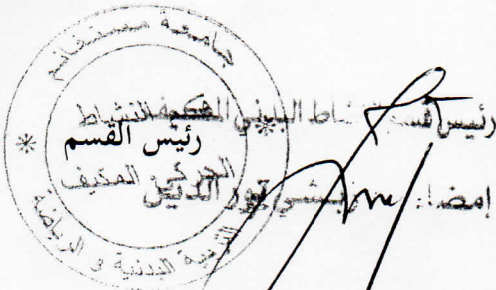 جامعة مستغانم
رئيس قسم النشاط البدني المكيف النشاط
رئيس القسم
الحركي المكيف
إمضاء: نور الدين
التربية البدنية و الرياضة